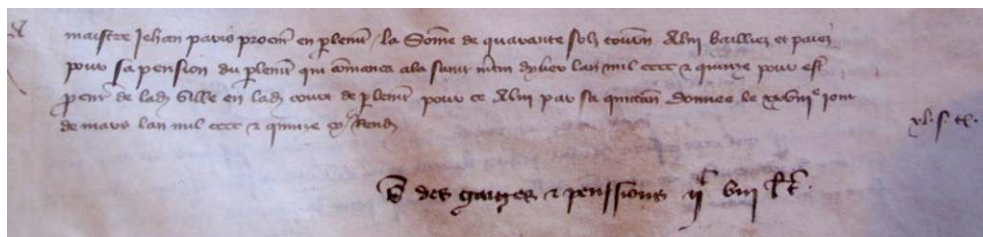 A maistre Jehan paris procur en plemt la Some de quarante solz tourn A lui baillez et paiez
pour sa pension du plemt qui comanca ala saint mtin dyver lan mil cccc & quinze pour estre
procur de lad ville en lad court de plemt pour ce A lui par sa quictan donnee le xxviiie jour
de mars lan mil cccc & quinze Rend
xl s t
des gaiges & penssions iic viii l t